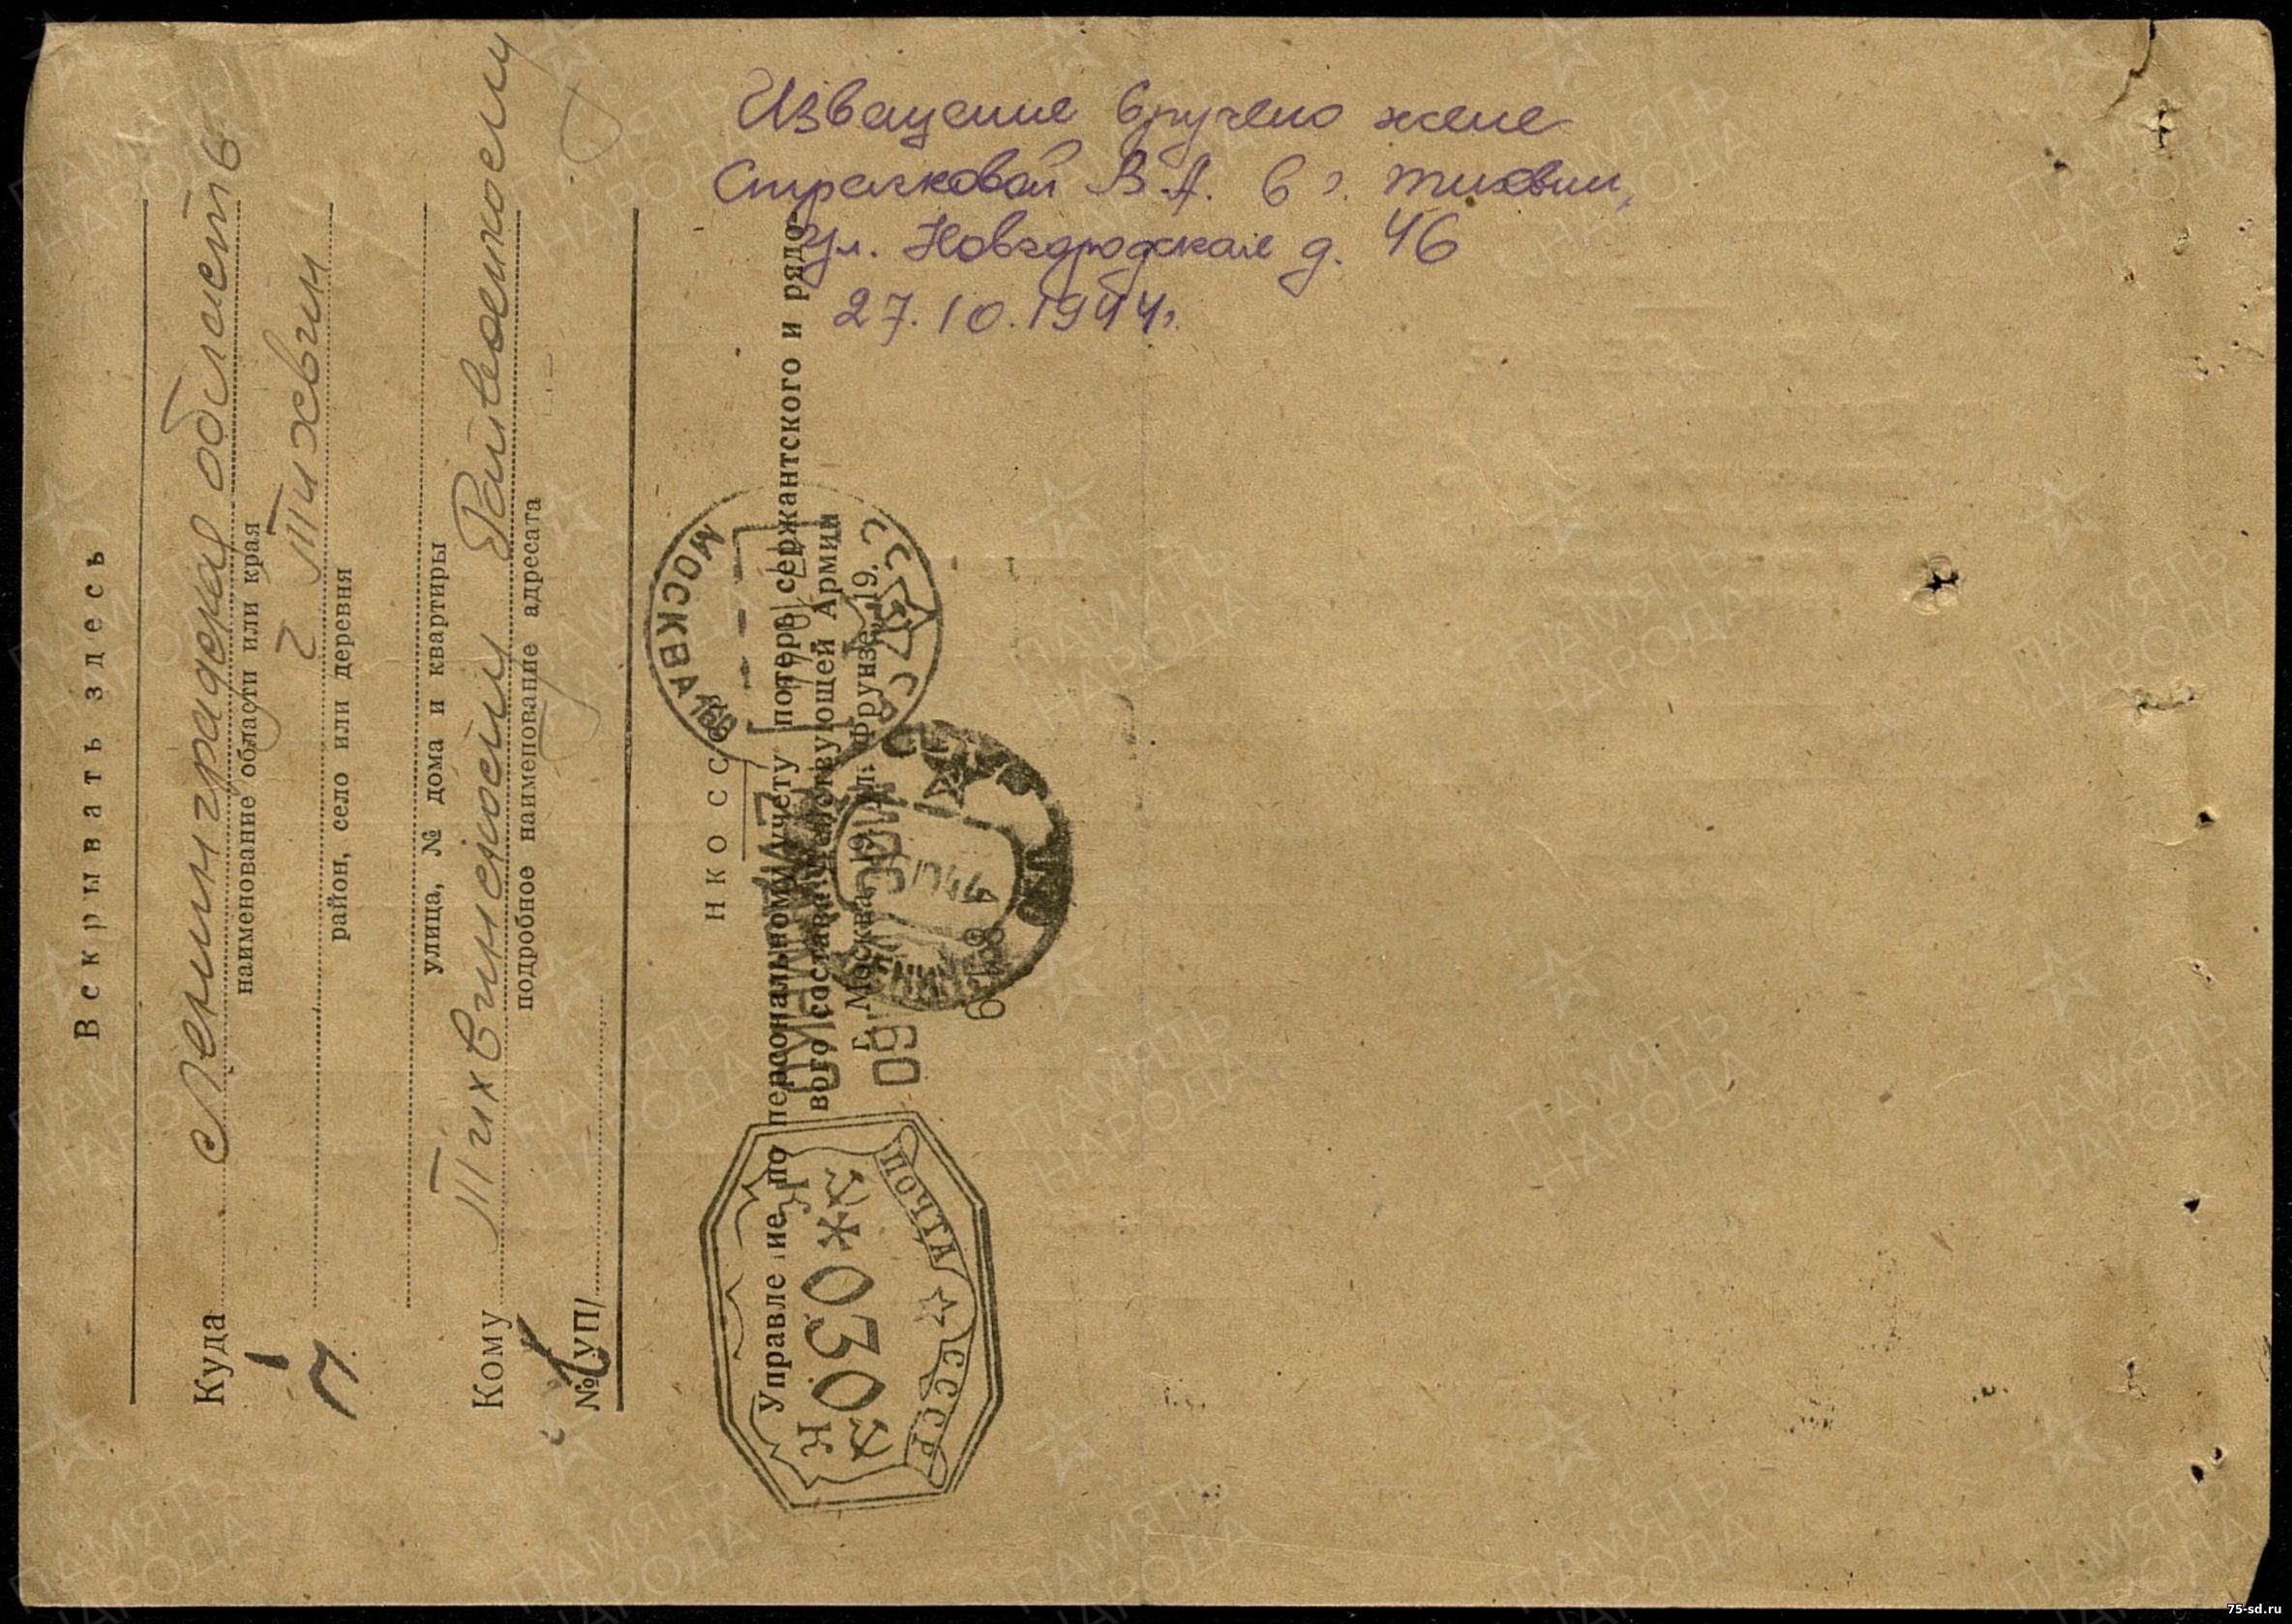 Извещение вручено жене
Страчковой В.А. в г. Тихвин,
ул. Новгородская д. 46
27.10.1944г.
Вскрывать здесь
Куда Ленинградская область
наименование области или края
г Тихвин
район, село или деревня
улица, № дома и квартиры
Кому Тихвинскому Райвоенкому
подробное наименование адресата
№ УП/
НКО СССР
Управление по персональному учету потерь сержантского и рядо-
вого состава действующей Армии
г. Москва, 19, ул. Фрунзе, 19.
МОСКВА
СССР
К 030 К
ПОЧТА СССР
ПАМЯТЬ НАРОДА
75-sd.ru